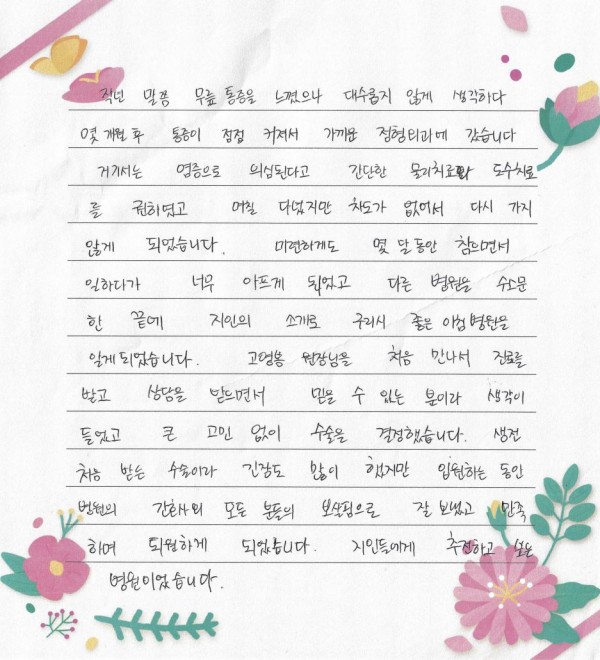 작년 말쯤 무릎 통증을 느꼈으나 대수롭지 않게 생각하다
몇 개월 후 통증이 점점 커져서 가까운 정형외과에 갔습니다
거기서는 염증으로 의심된다고 간단한 물리치료와 도수치료
를 권하였고 며칠 다녔지만 차도가 없어서 다시 가지
않게 되었습니다. 미련하게도 몇 달 동안 참으면서
일하다가 너무 아프게 되었고 다른 병원을 수소문
한 끝에 지인의 소개로 구리시 좋은아침병원을
알게되었습니다. 고영봉 원장님을 처음 만나서 진료를
받고 상담을 받으면서 믿을 수 있는 분이라 생각이
들었고 큰 고민 없이 수술을 결정했습니다. 생전
처음 받는 수술이라 긴장도 많이 했지만 입원하는 동안
병원의 간호사외 모든 분들의 보살핌으로 잘 보냈고 만족
하며 퇴원하게 되었습니다. 지인들에게 추천하고 싶은
병원이었습니다.